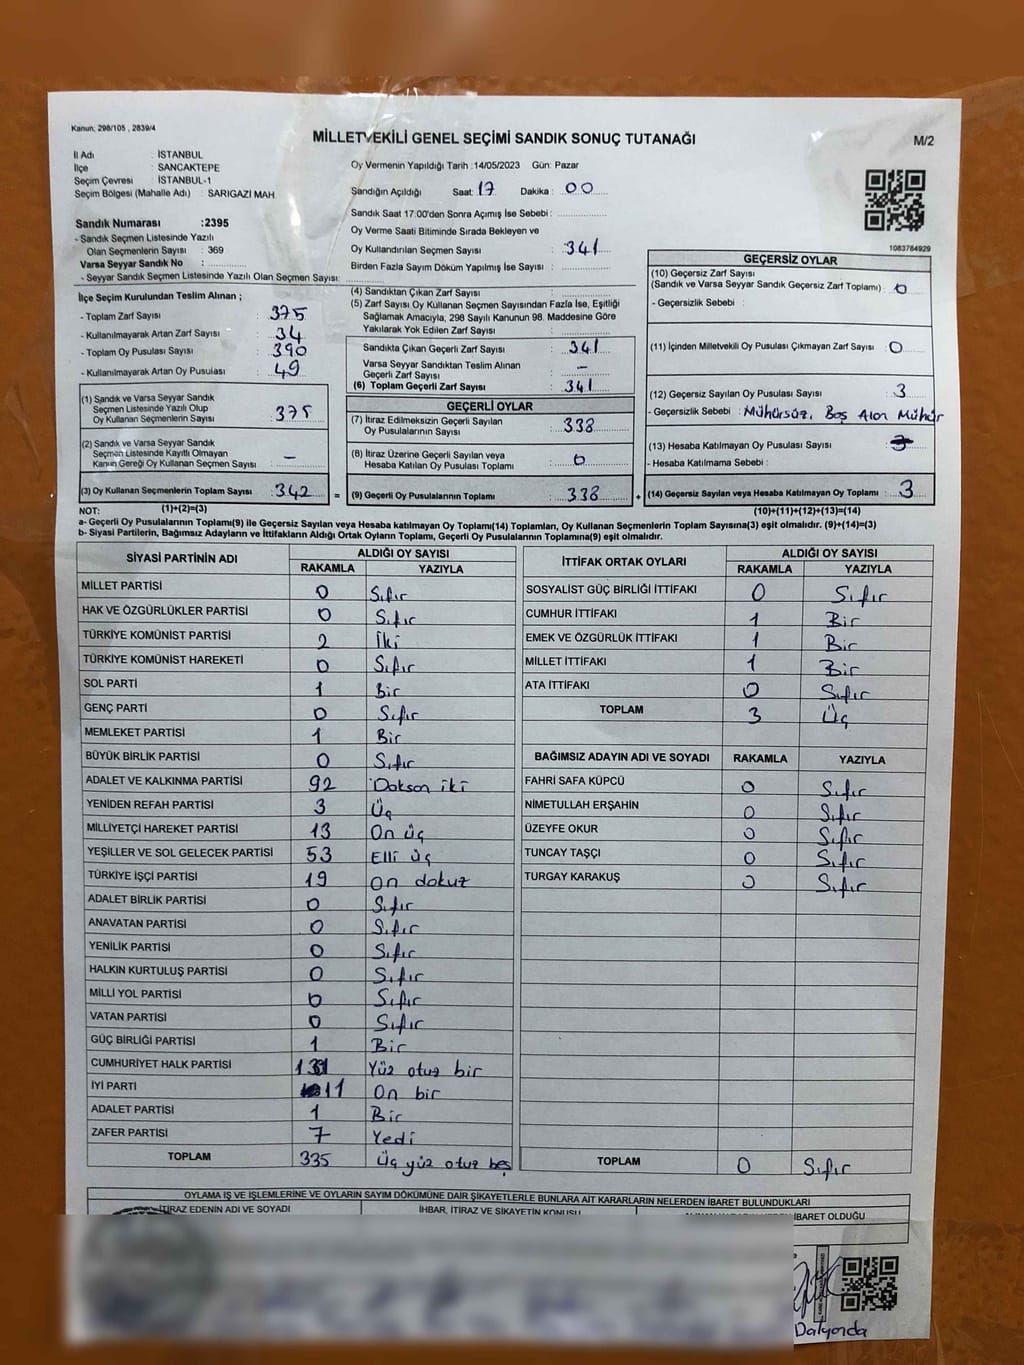 Kanun; 298/105 , 2839/4
MİLLETVEKİLİ GENEL SEÇİMİ SANDIK SONUÇ TUTANAĞI
M/2
İl Adı : İSTANBUL
İlçe : SANCAKTEPE
Seçim Çevresi : İSTANBUL-1
Seçim Bölgesi (Mahalle Adı) : SARIGAZİ MAH
Oy Vermenin Yapıldığı Tarih :14/05/2023 Gün: Pazar
Sandığın Açıldığı Saat: 17 Dakika : 00
Sandık Saat 17:00'den Sonra Açımış İse Sebebi :
Sandık Numarası :2395
- Sandık Seçmen Listesinde Yazılı
Olan Seçmenlerin Sayısı : 369
Varsa Seyyar Sandık No :
- Seyyar Sandık Seçmen Listesinde Yazılı Olan Seçmen Sayısı:
Oy Verme Saati Bitiminde Sırada Bekleyen ve
Oy Kullandırılan Seçmen Sayısı : 341
Birden Fazla Sayım Döküm Yapılmış İse Sayısı :
1083784929
İlçe Seçim Kurulundan Teslim Alınan ;
- Toplam Zarf Sayısı : 375
- Kullanılmayarak Artan Zarf Sayısı : 34
- Toplam Oy Pusulası Sayısı : 390
- Kullanılmayarak Artan Oy Pusulası : 49
(1) Sandık ve Varsa Seyyar Sandık
Seçmen Listesinde Yazılı Olup
Oy Kullanan Seçmenlerin Sayısı : 375
(2) Sandık ve Varsa Seyyar Sandık
Seçmen Listesinde Kayıtlı Olmayan
Kanun Gereği Oy Kullanan Seçmen Sayısı : –
(3) Oy Kullanan Seçmenlerin Toplam Sayısı : 342 =
(1)+(2)=(3)
(4) Sandıktan Çıkan Zarf Sayısı :
(5) Zarf Sayısı Oy Kullanan Seçmen Sayısından Fazla İse, Eşitliği
Sağlamak Amacıyla, 298 Sayılı Kanunun 98. Maddesine Göre
Yakılarak Yok Edilen Zarf Sayısı :
Sandıkta Çıkan Geçerli Zarf Sayısı : 341
Varsa Seyyar Sandıktan Teslim Alınan
Geçerli Zarf Sayısı : –
(6) Toplam Geçerli Zarf Sayısı : 341
GEÇERLİ OYLAR
(7) İtiraz Edilmeksizin Geçerli Sayılan
Oy Pusulalarının Sayısı : 338
(8) İtiraz Üzerine Geçerli Sayılan veya
Hesaba Katılan Oy Pusulası Toplamı : 0
(9) Geçerli Oy Pusulalarının Toplamı : 338 +
GEÇERSİZ OYLAR
(10) Geçersiz Zarf Sayısı
(Sandık ve Varsa Seyyar Sandık Geçersiz Zarf Toplamı) : 0
- Geçersizlik Sebebi :
(11) İçinden Milletvekili Oy Pusulası Çıkmayan Zarf Sayısı : 0
(12) Geçersiz Sayılan Oy Pusulası Sayısı : 3
- Geçersizlik Sebebi : Mühürsüz, Boş Alan Mühür
(13) Hesaba Katılmayan Oy Pusulası Sayısı :
- Hesaba Katılmama Sebebi :
(14) Geçersiz Sayılan veya Hesaba Katılmayan Oy Toplamı : 3
(10)+(11)+(12)+(13)=(14)
NOT:
a- Geçerli Oy Pusulalarının Toplamı(9) ile Geçersiz Sayılan veya Hesaba katılmayan Oy Toplamı(14) Toplamları, Oy Kullanan Seçmenlerin Toplam Sayısına(3) eşit olmalıdır. (9)+(14)=(3)
b- Siyasi Partilerin, Bağımsız Adayların ve İttifakların Aldığı Ortak Oyların Toplamı, Geçerli Oy Pusulalarının Toplamına(9) eşit olmalıdır.
SİYASİ PARTİNİN ADI ALDIĞI OY SAYISI
RAKAMLA YAZIYLA
MİLLET PARTİSİ 0 Sıfır
HAK VE ÖZGÜRLÜKLER PARTİSİ 0 Sıfır
TÜRKİYE KOMÜNİST PARTİSİ 2 İki
TÜRKİYE KOMÜNİST HAREKETİ 0 Sıfır
SOL PARTİ 1 Bir
GENÇ PARTİ 0 Sıfır
MEMLEKET PARTİSİ 1 Bir
BÜYÜK BİRLİK PARTİSİ 0 Sıfır
ADALET VE KALKINMA PARTİSİ 92 Doksan iki
YENİDEN REFAH PARTİSİ 3 Üç
MİLLİYETÇİ HAREKET PARTİSİ 13 On üç
YEŞİLLER VE SOL GELECEK PARTİSİ 53 Elli üç
TÜRKİYE İŞÇİ PARTİSİ 19 On dokuz
ADALET BİRLİK PARTİSİ 0 Sıfır
ANAVATAN PARTİSİ 0 Sıfır
YENİLİK PARTİSİ 0 Sıfır
HALKIN KURTULUŞ PARTİSİ 0 Sıfır
MİLLİ YOL PARTİSİ 0 Sıfır
VATAN PARTİSİ 0 Sıfır
GÜÇ BİRLİĞİ PARTİSİ 1 Bir
CUMHURİYET HALK PARTİSİ 131 Yüz otuz bir
İYİ PARTİ 11 On bir
ADALET PARTİSİ 1 Bir
ZAFER PARTİSİ 7 Yedi
TOPLAM 335 Üç yüz otuz beş
İTTİFAK ORTAK OYLARI ALDIĞI OY SAYISI
RAKAMLA YAZIYLA
SOSYALİST GÜÇ BİRLİĞİ İTTİFAKI 0 Sıfır
CUMHUR İTTİFAKI 1 Bir
EMEK VE ÖZGÜRLÜK İTTİFAKI 1 Bir
MİLLET İTTİFAKI 1 Bir
ATA İTTİFAKI 0 Sıfır
TOPLAM 3 Üç
BAĞIMSIZ ADAYIN ADI VE SOYADI RAKAMLA YAZIYLA
FAHRİ SAFA KÜPCÜ 0 Sıfır
NİMETULLAH ERŞAHİN 0 Sıfır
ÜZEYFE OKUR 0 Sıfır
TUNCAY TAŞÇI 0 Sıfır
TURGAY KARAKUŞ 0 Sıfır
TOPLAM 0 Sıfır
OYLAMA İŞ VE İŞLEMLERİNE VE OYLARIN SAYIM DÖKÜMÜNE DAİR ŞİKAYETLERLE BUNLARA AİT KARARLARIN NELERDEN İBARET BULUNDUKLARI
İTİRAZ EDENİN ADI VE SOYADI
İHBAR, İTİRAZ VE ŞİKAYETİN KONUSU
İBARET OLDUĞU